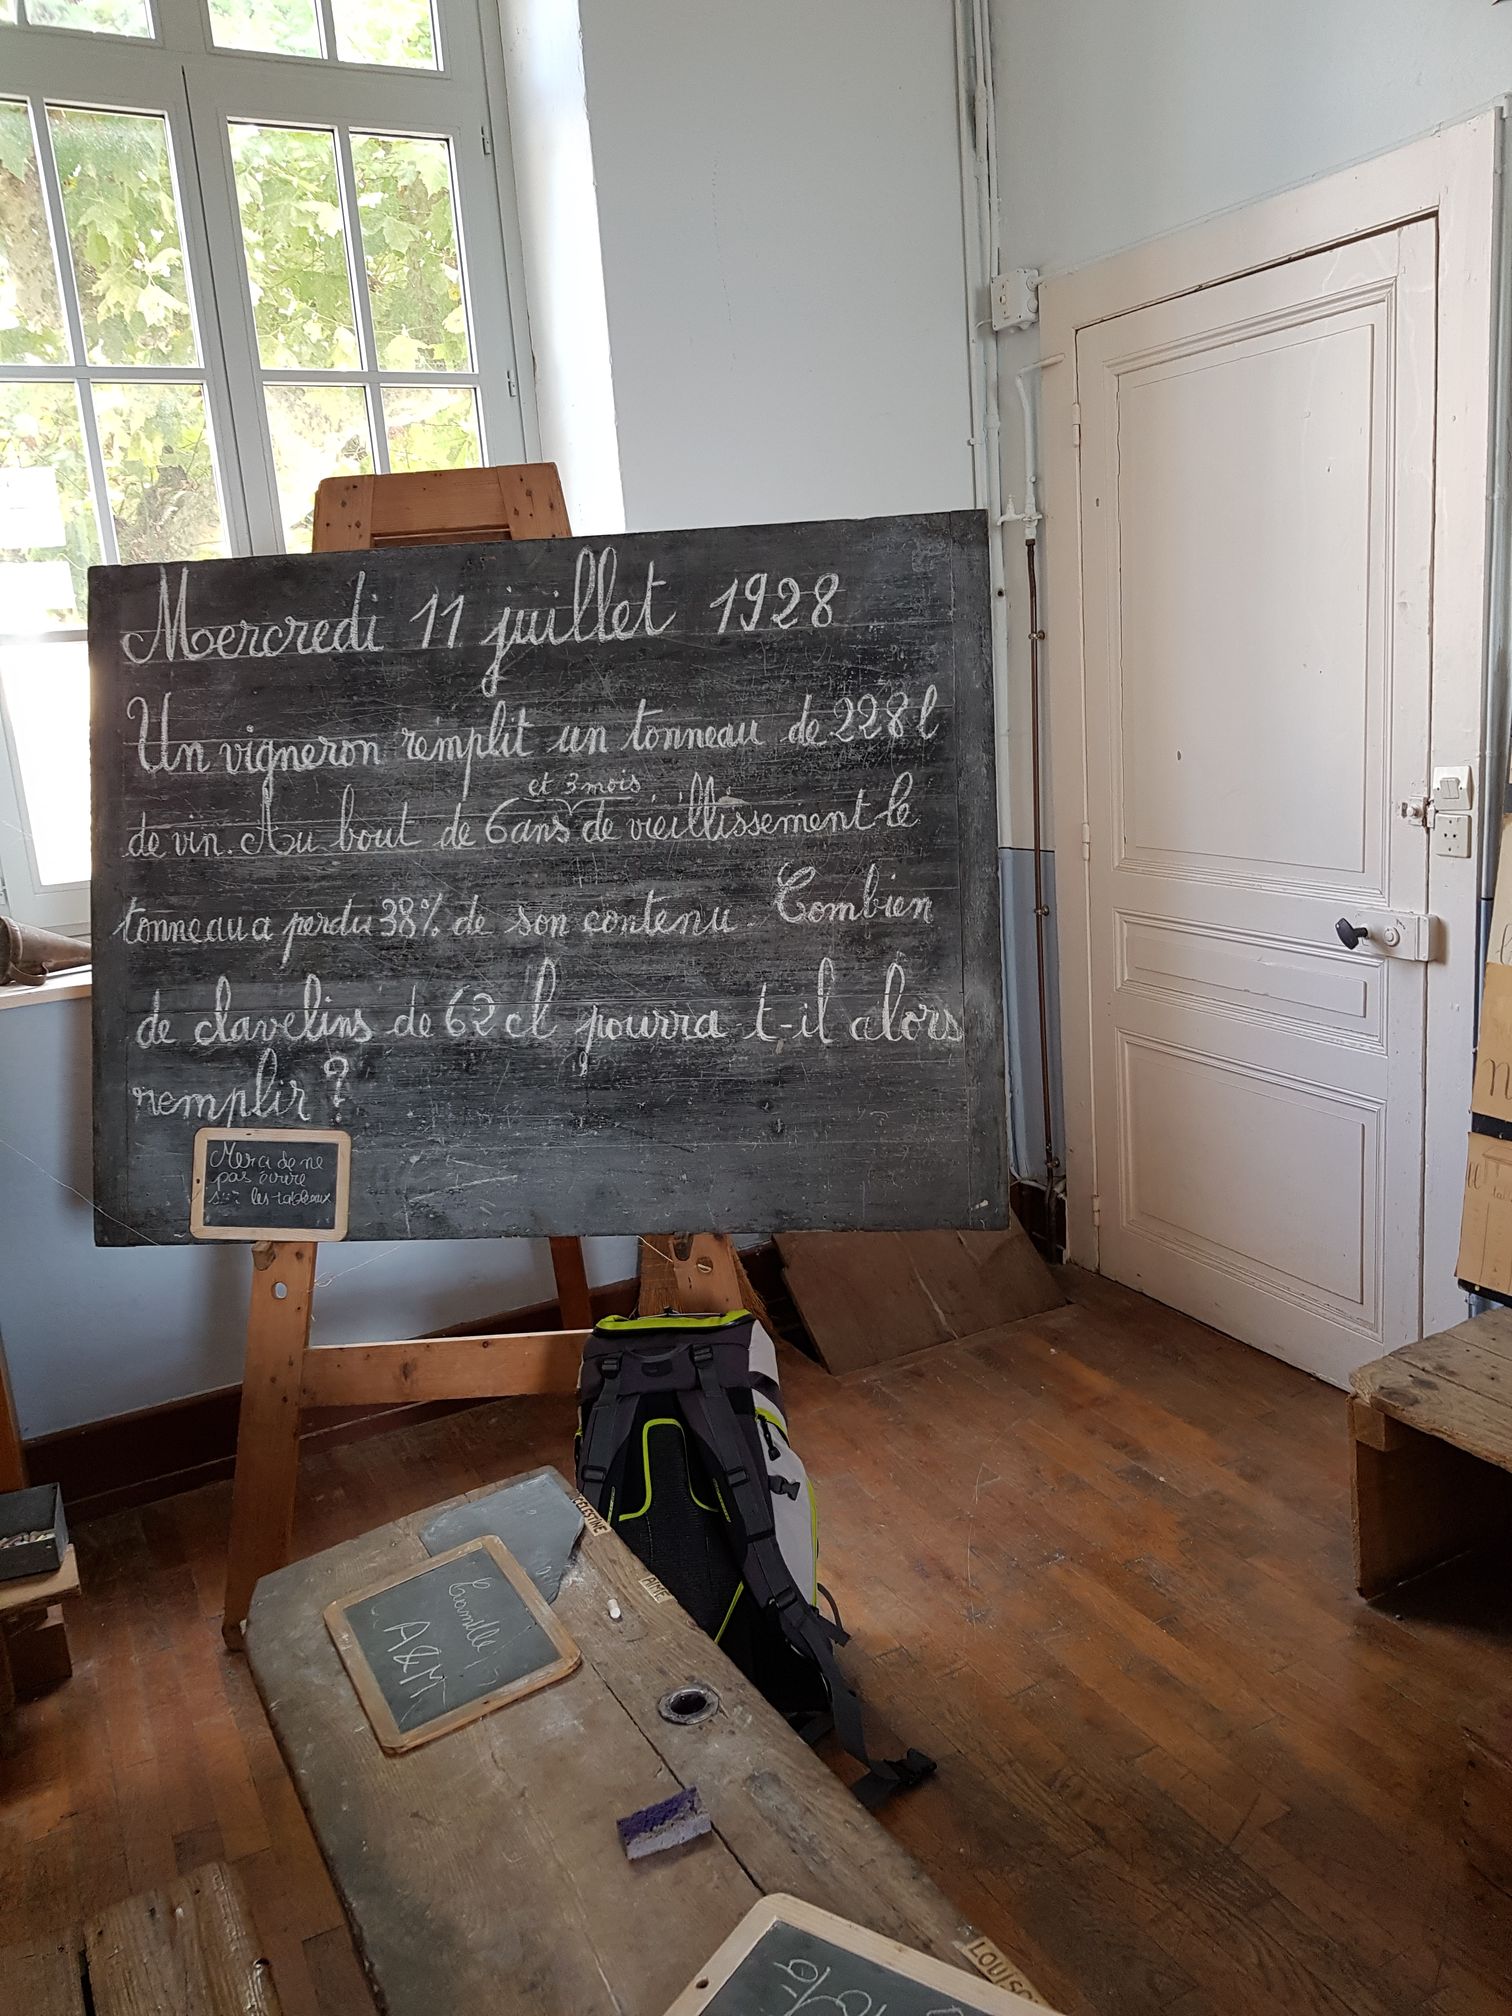 Mercredi 11 juillet 1928
Un vigneron remplit un tonneau de 228 l
et 3 mois
de vin. Au bout de 6 ans de vieillissement le
tonneau a perdu 38% de son contenu. Combien
de clavelins de 62 cl pourra t-il alors
remplir ?
Merci de ne
pas écrire
sur les tableaux
CELESTINE
AIMÉ
Camille
A&M
LOUIS